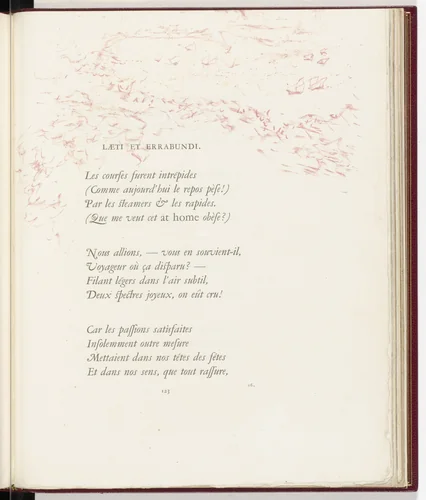 LÆTI ET ERRABUNDI.
Les courſes furent intrépides
(Comme aujourd'hui le repos pèſe!)
Par les ſteamers & les rapides.
(Que me veut cet at home obèſe?)
Nous allions, — vous en souvient-il,
Voyageur où ça diſparu? —
Filant légers dans l'air subtil,
Deux ſpectres joyeux, on eût cru!
Car les paſſions satisfaites
Inſolemment outre meſure
Mettaient dans nos têtes des fêtes
Et dans nos sens, que tout raſſure,
123
16.